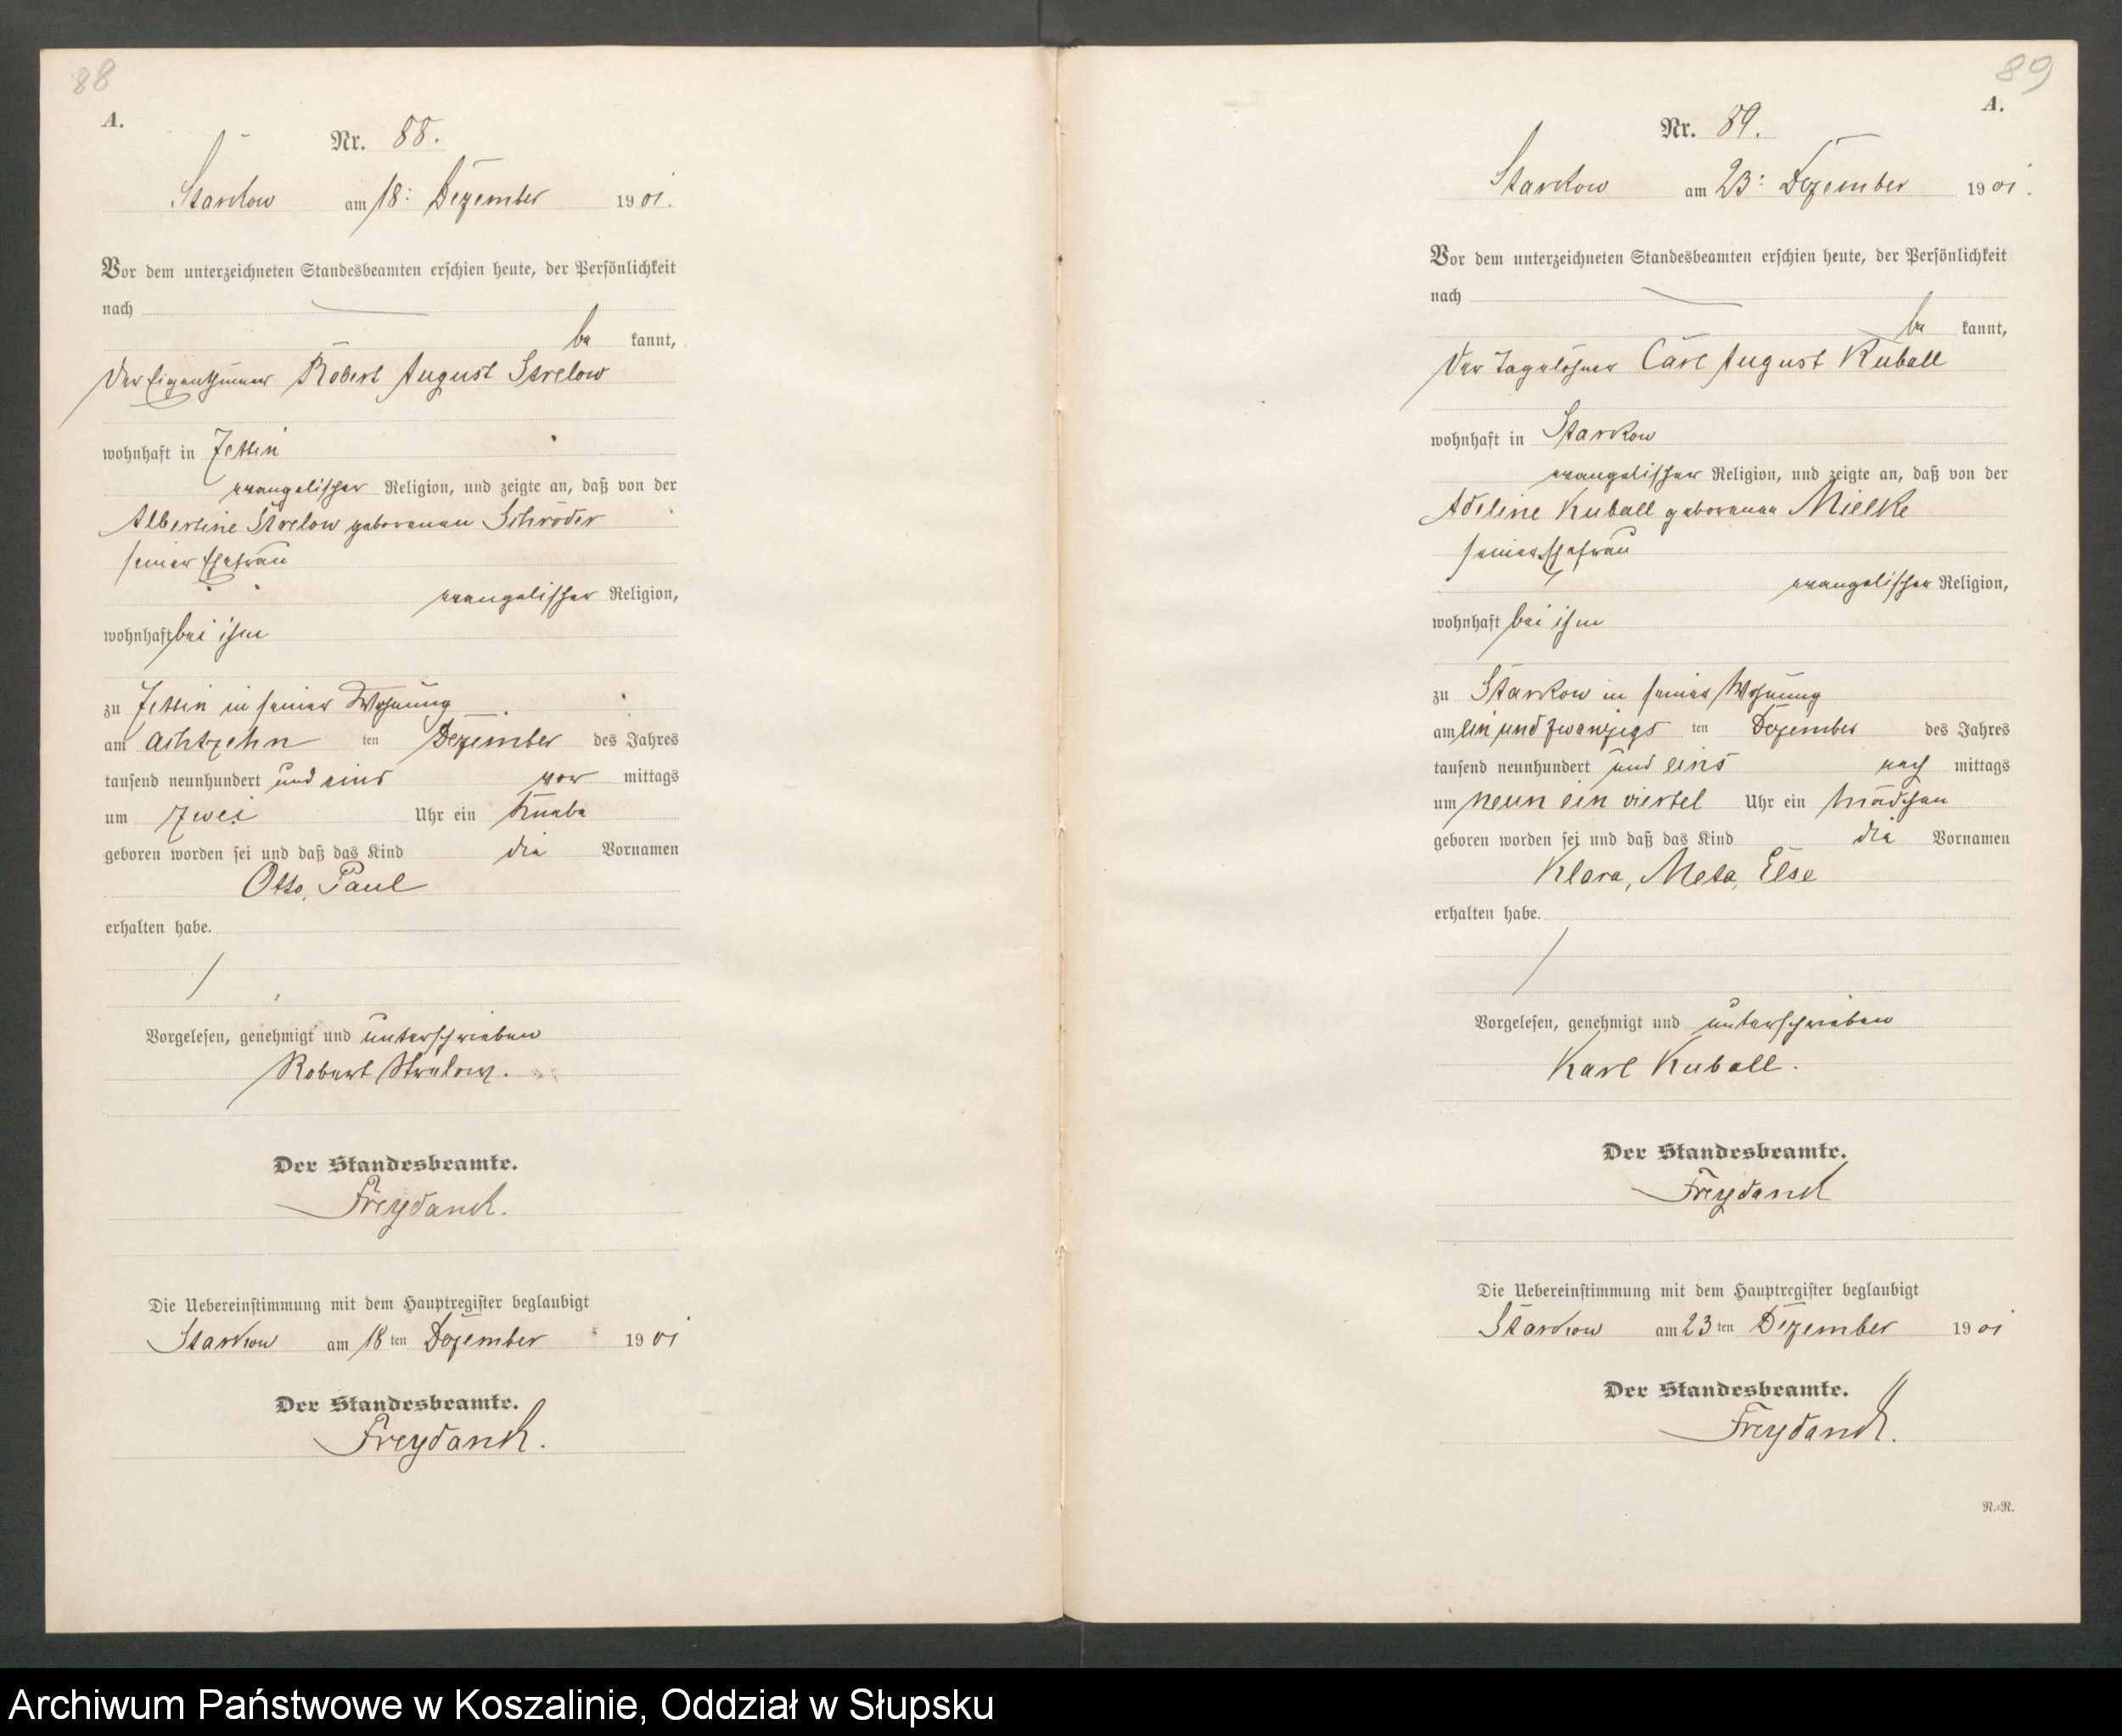 88
A.
Nr. 88.
Starkow am 18. Dezember 1901.
Vor dem unterzeichneten Standesbeamten erschien heute, der Persönlichkeit
nach
be kannt,
der Eigenthümer Robert August Strelow
wohnhaft in Jettin
evangelischer Religion, und zeigte an, daß von der
Albertine Strelow geborenen Schröder
seiner Ehefrau
evangelischer Religion,
wohnhaft bei ihm
zu Jettin in seiner Wohnung
am achtzehn ten Dezember des Jahres
tausend neunhundert und eins vor mittags
um zwei Uhr ein Knabe
geboren worden sei und daß das Kind die Vornamen
Otto, Paul
erhalten habe.
Vorgelesen, genehmigt und unterschrieben
Robert Strelow.
Der Standesbeamte.
Freydanck.
Die Uebereinstimmung mit dem Hauptregister beglaubigt
Starkow am 18 ten Dezember 1901
Der Standesbeamte.
Freydanck.
89
A.
Nr. 89.
Starkow am 23. Dezember 1901.
Vor dem unterzeichneten Standesbeamten erschien heute, der Persönlichkeit
nach
be kannt,
der Tagelöhner Carl August Kuball
wohnhaft in Starkow
evangelischer Religion, und zeigte an, daß von der
Adeline Kuball geborenen Mielke
seiner Ehefrau
evangelischer Religion,
wohnhaft bei ihm
zu Starkow in seiner Wohnung
am ein und zwanzigs ten Dezember des Jahres
tausend neunhundert und eins nach mittags
um neun ein viertel Uhr ein Mädchen
geboren worden sei und daß das Kind die Vornamen
Klara, Meta, Else
erhalten habe.
Vorgelesen, genehmigt und unterschrieben
Karl Kuball.
Der Standesbeamte.
Freydanck
Die Uebereinstimmung mit dem Hauptregister beglaubigt
Starkow am 23 ten Dezember 1901
Der Standesbeamte.
Freydanck.
N.=N.
Archiwum Państwowe w Koszalinie, Oddział w Słupsku